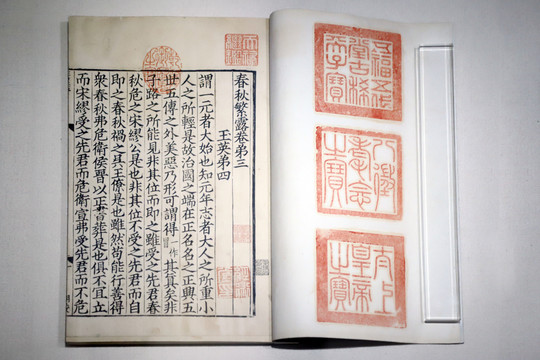 春秋繁露卷第三
玉英第四
謂一元者大始也知元年志者大人之所重小
人之所輕是故治國之端在正名名之正興五
世五傳之外美惡乃形可謂得其真矣非
子路之所能見非其位而即之雖受之先君春
秋危之宋繆公是也非其位不受之先君而自
即之春秋禍之吳王僚是也雖然苟能行善得
衆春秋弗危衛侯晉以正書葬是也俱不宜立
而宋繆受之先君而危衛宣弗受先君而不危
五福五代堂古稀天子寶
八徵耄念之寶
太上皇帝之寶